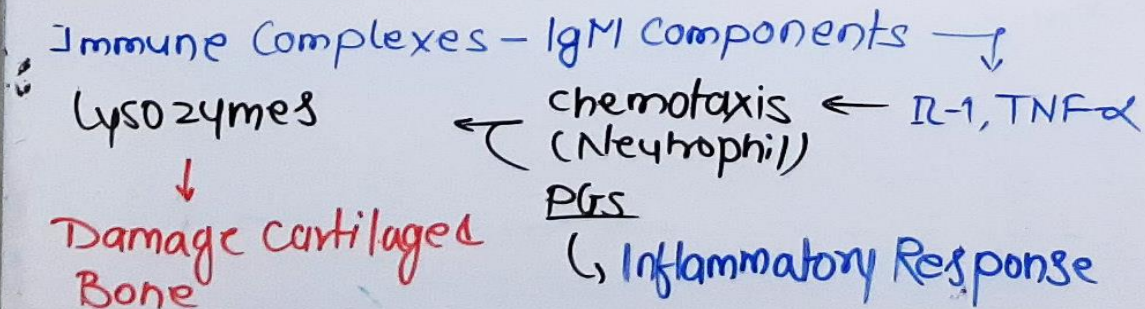 Immune Complexes - IgM Components →
Lysozymes ← chemotaxis ← IL-1, TNF-α
(Neutrophil)
↓ PGS
Damage Cartilage &
Bone
↳ Inflammatory Response